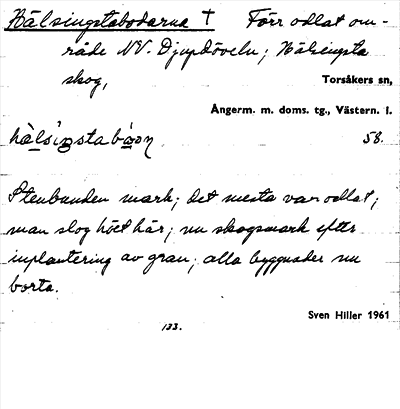 Hälsingstabodarna † Förr odlat om-
råde NV. Djupdöveln; Hälsingsta
skog,
Torsåkers sn,
Ångerm. m. doms. tg., Västern. l.
hàlsiŋstabòon 58.
Stenbunden mark; det mesta var odlat;
man slog höet här; nu skogsmark efter
inplantering av gran; alla byggnader nu
borta.
Sven Hiller 1961
133.